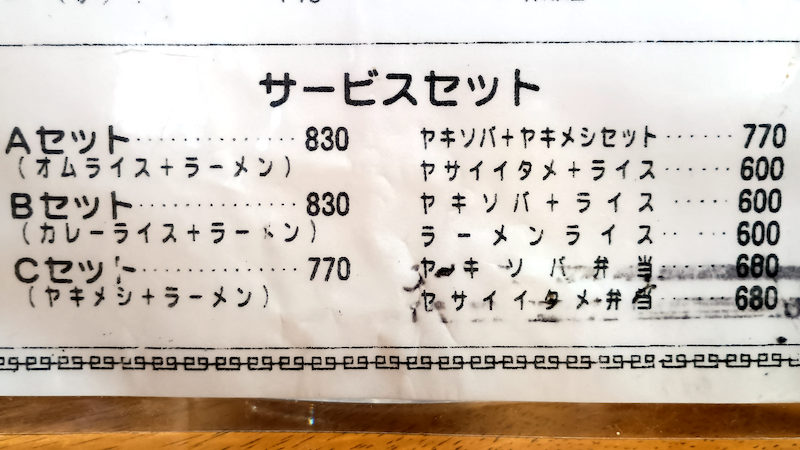 サービスセット
Aセット 830
(オムライス+ラーメン)
Bセット 830
(カレーライス+ラーメン)
Cセット 770
(ヤキメシ+ラーメン)
ヤキソバ+ヤキメシセット 770
ヤサイイタメ+ライス 600
ヤキソバ+ライス 600
ラーメンライス 600
ヤキソバ弁当 680
ヤサイイタメ弁当 680